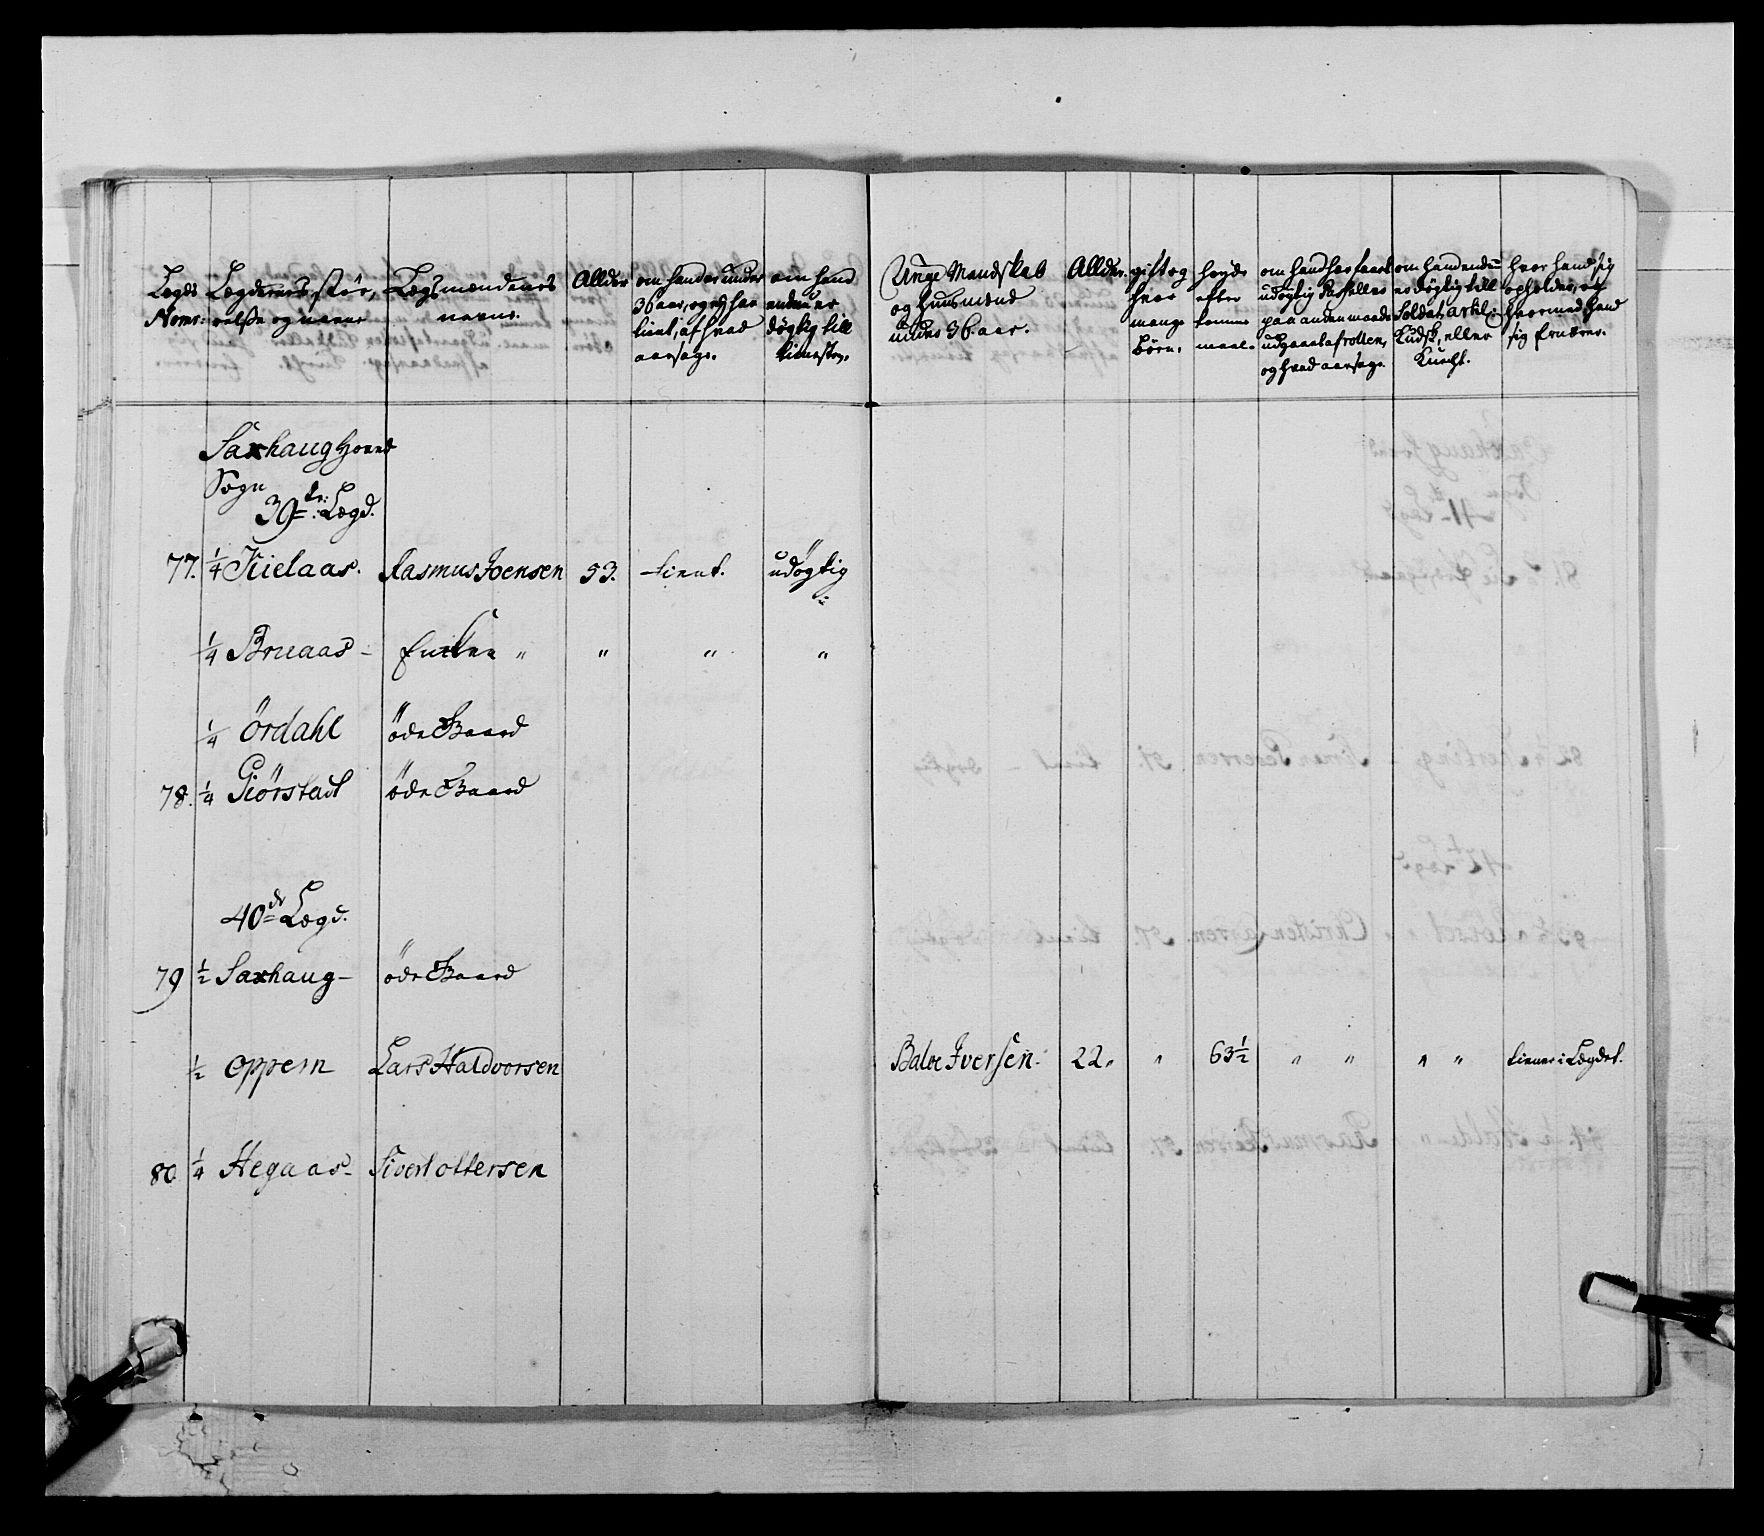 Legds Noms:
Lægdernes stör, relse og nafne
Lægsmændenes nafne.
Allder
om hand er under 36 aar, og ej har tient, af hvad aarsage.
om hand endnu er dögtig till tienesten.
Unge Mandskab og huusmænd under 36 aar.
Allder.
gift og hvor mange börn.
höyde efter tomme maal.
om hand har faaet udögtig Pas eller paa anden maade udgaaet af rollen, og hvad aarsage.
om hand endnu er dögtig till Soldat, artil: Kudsk, eller Knecht.
hvor hand sig opholder, og hvormed hand sig ernærer.
Saxhaug Hoved
Sogn
39te: Lægd.
77. 1/4 Kielaas. Rasmus Joensen 53. tient. udögtig
1/4 Bruaas - Enken " " " "
1/4 Ördahl öde Gaard
78. 1/4 Giörstad öde Gaard
40de Lægd.
79 1/2 Saxhaug - öde Gaard
1/2 Oppem Lars Haldvorsen Baloe Iversen. 22. " 63 1/2 " " " " tiener i Lægdet.
80 1/4 Hegaas - Sivert Ottersen